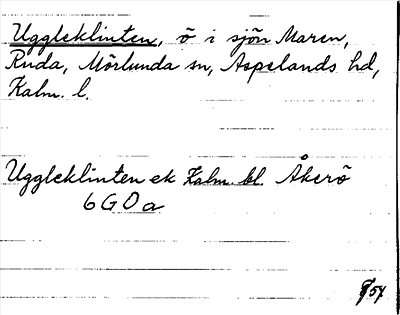 Uggleklinten, ö i sjön Maren,
Ruda, Mörlunda sn, Aspelands hd,
Kalm. l.
Uggleklinten ek Kalm. bl. Åkerö
6 G O a
/54